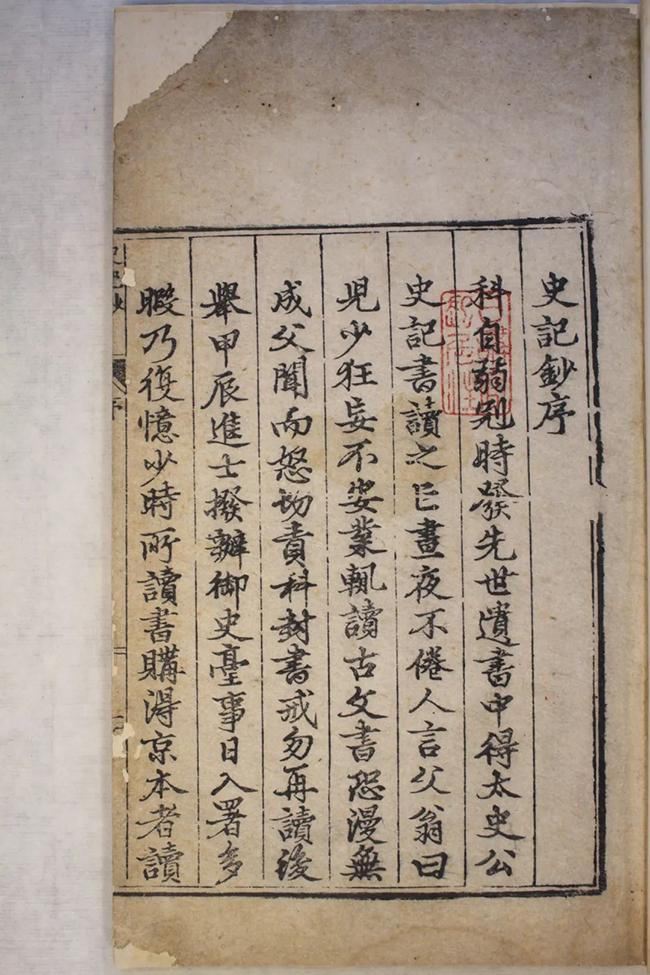 史記鈔序
科自弱冠時發先世遺書中得太史公
史記書讀之㠯晝夜不倦人言父翁曰
児少狂妄不安業輒讀古文書恐漫無
成父聞而怒切責科封書戒勿再讀後
舉甲辰進士撥辦御史臺事日入署多
暇乃復憶少時所讀書購得京本者讀
史記鈔
序